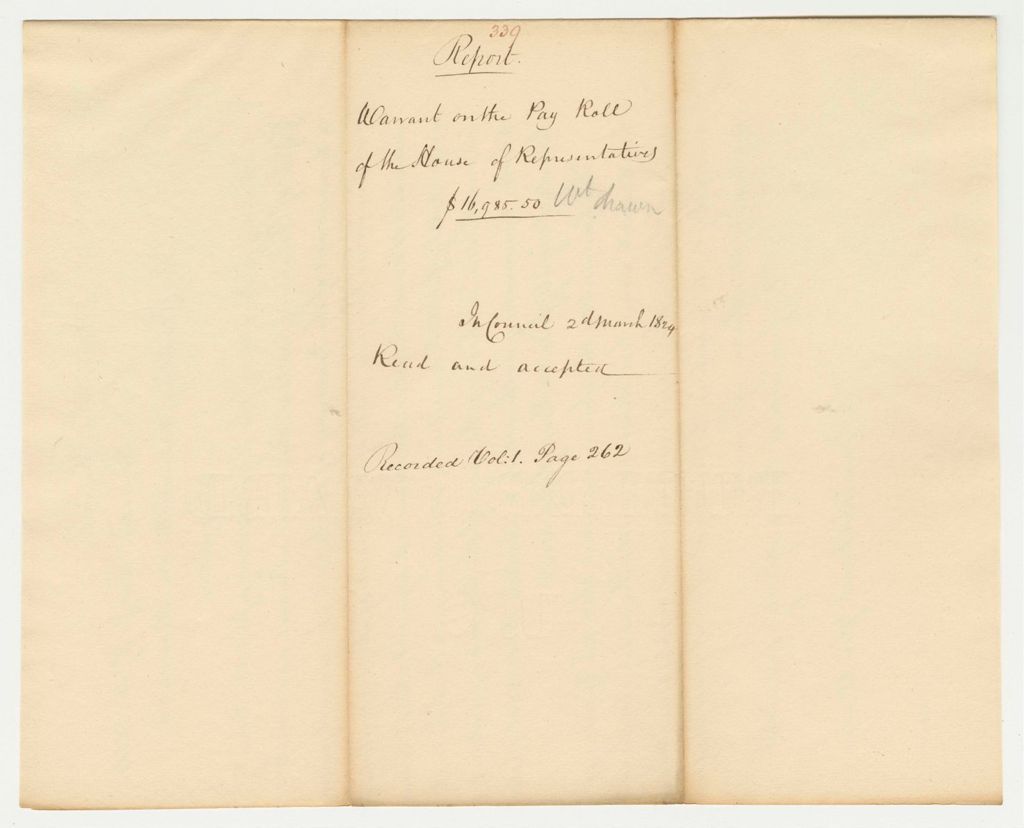 339
Report.
Warrant on the Pay Roll
of the House of Representatives
$16,985.50 Wt drawn
In Council 2d March 1829
Read and accepted
Recorded Vol: 1. Page 262